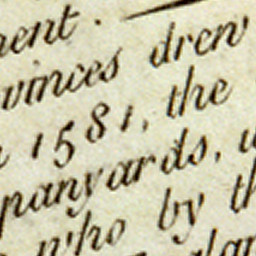 ment. —
vinces drew
1581, the
panyards,
who by th